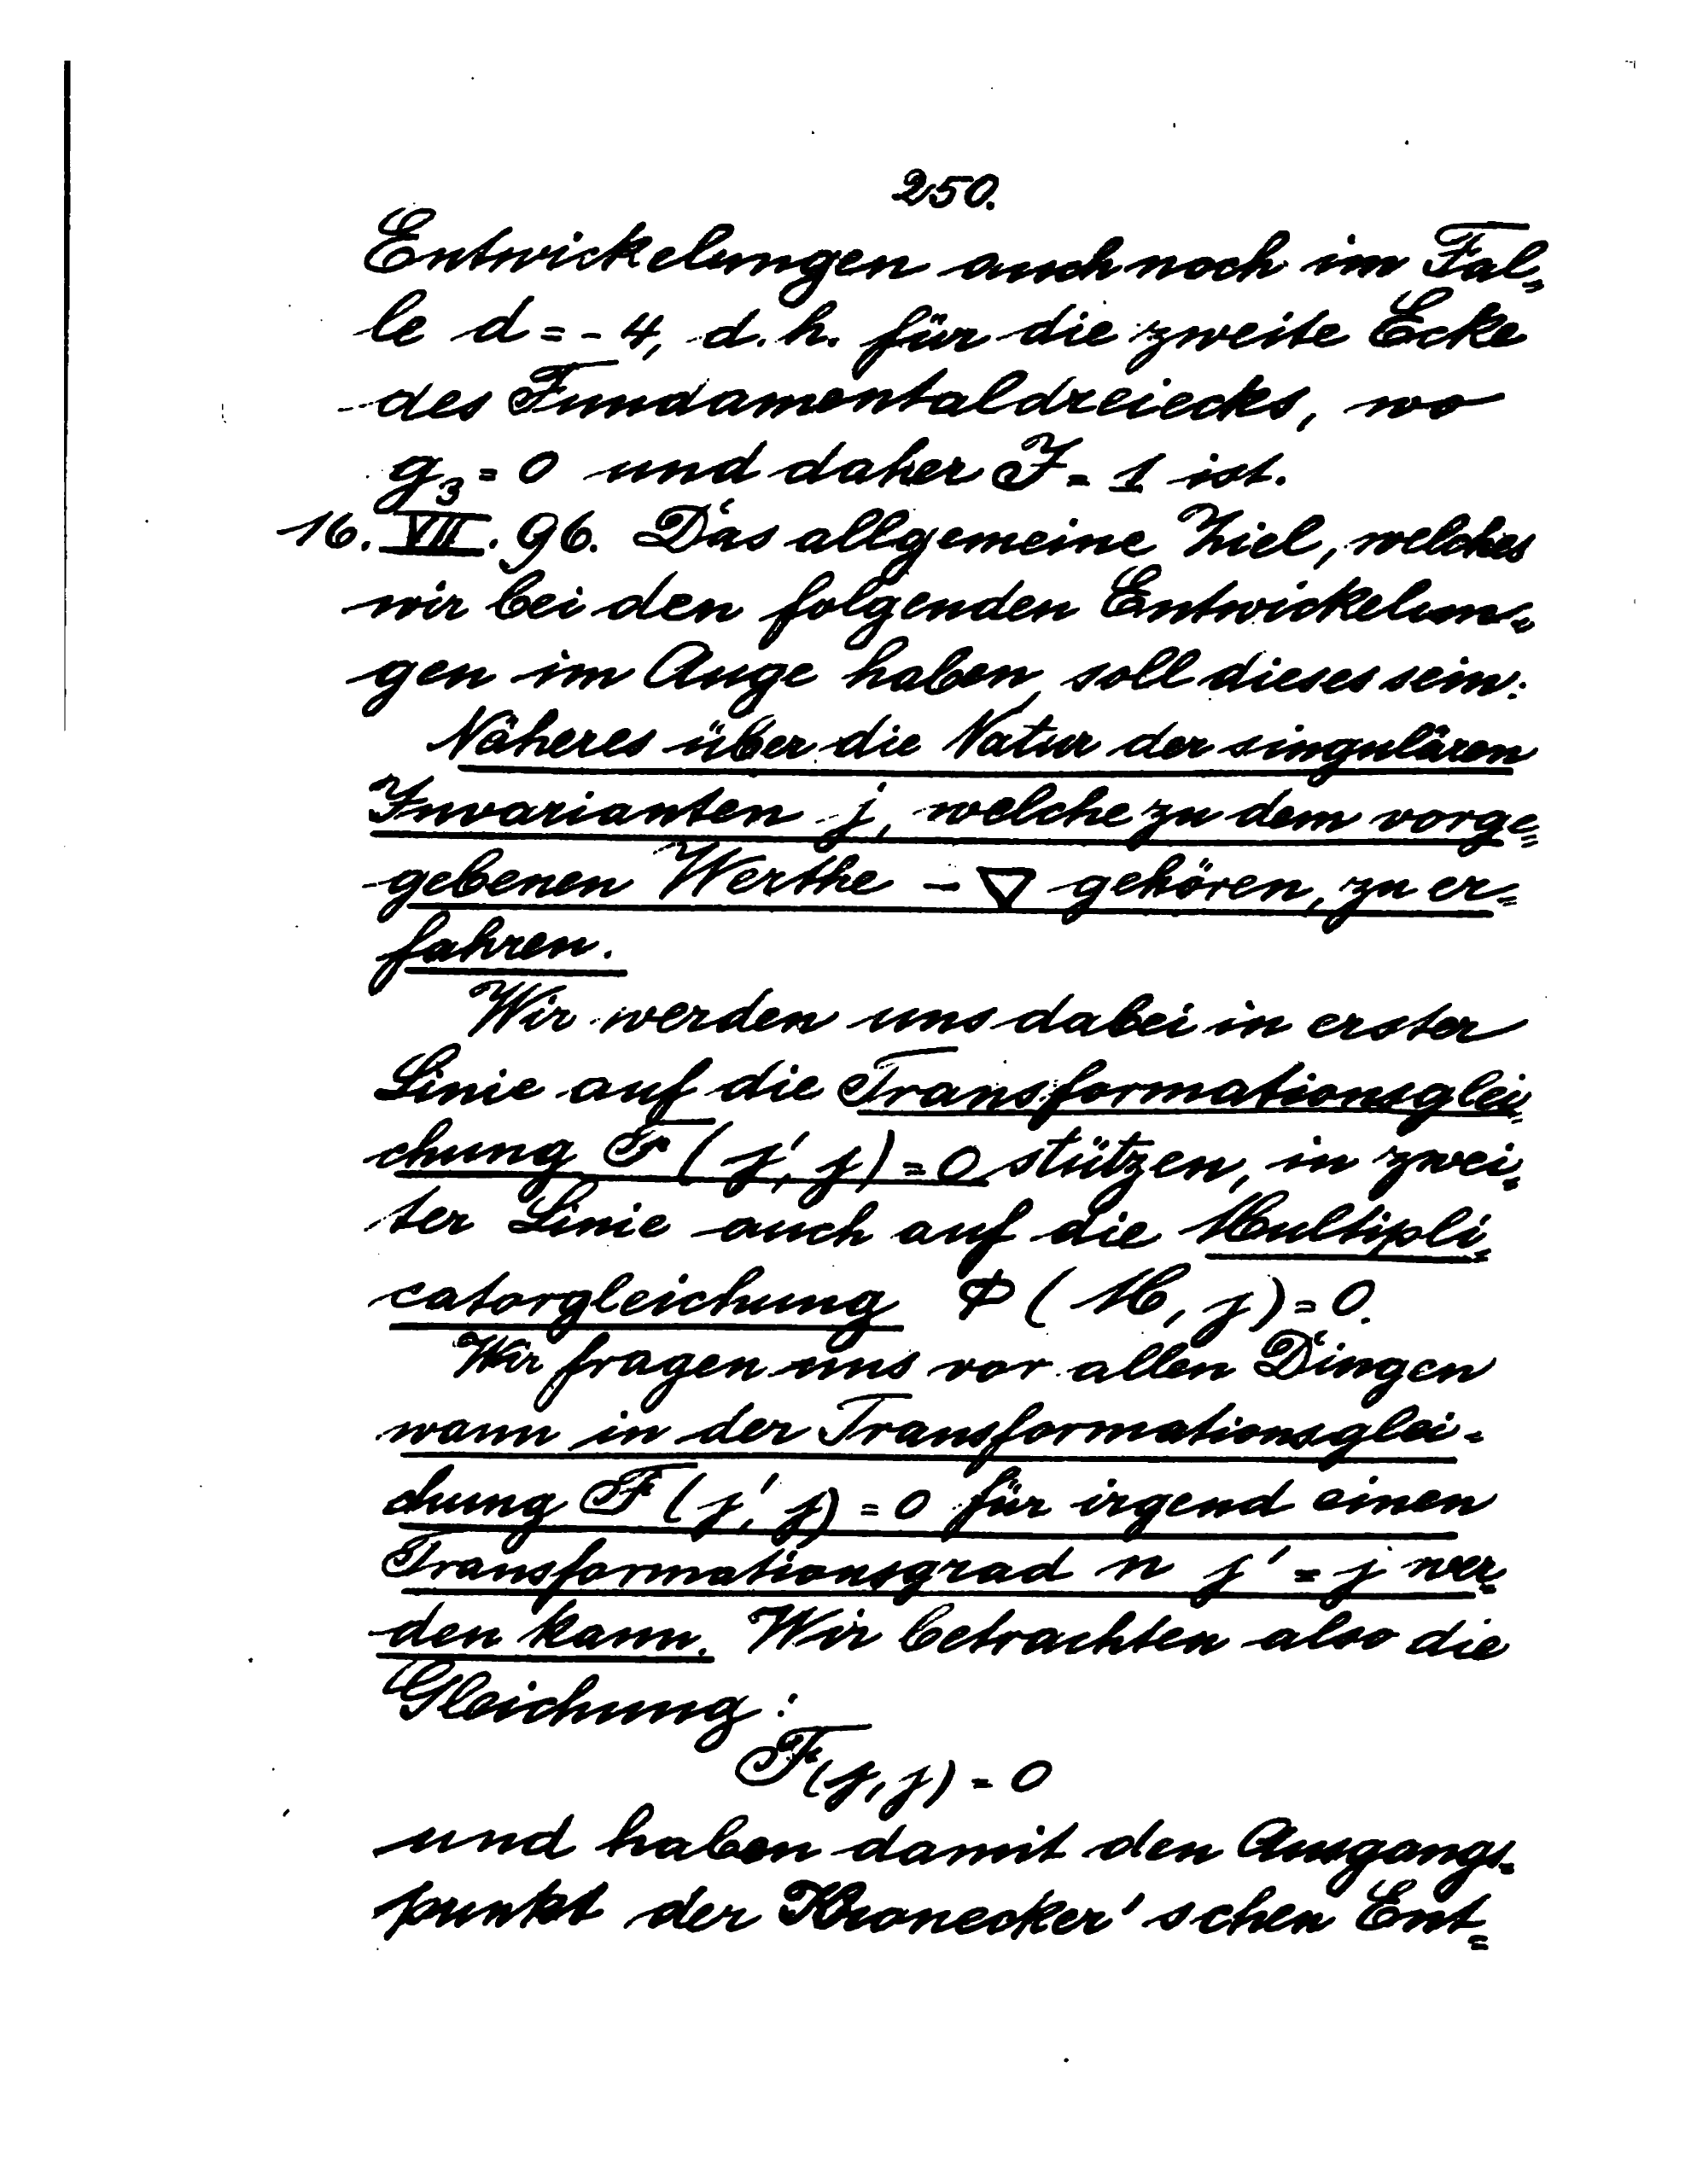 250.
Entwickelungen auch noch im Fal„
le d = - 4, d. h. für die zweite Ecke
des Fundamentaldreiecks, wo
g₃ = 0 und daher J = 1 ist.
16. VII. 96. Das allgemeine Ziel, welches
wir bei den folgenden Entwickelun„
gen im Auge haben, soll dieses sein:
Näheres über die Natur der singulären
Invarianten j, welche zu dem vorge„
gebenen Werthe - ∇ gehören, zu er„
fahren.
Wir werden uns dabei in erster
Linie auf die Transformationsglei„
chung F(j', j) = 0 stützen, in zwei„
ter Linie auch auf die Multipli„
catorgleichung Φ(M, j) = 0.
Wir fragen uns vor allen Dingen
wann in der Transformationsglei-
chung F(j', j) = 0 für irgend einen
Transformationsgrad n j' = j wer„
den kann. Wir betrachten also die
Gleichung:
F(j, j) = 0
und haben damit den Ausgangs„
punkt der Kronecker'schen Ent„